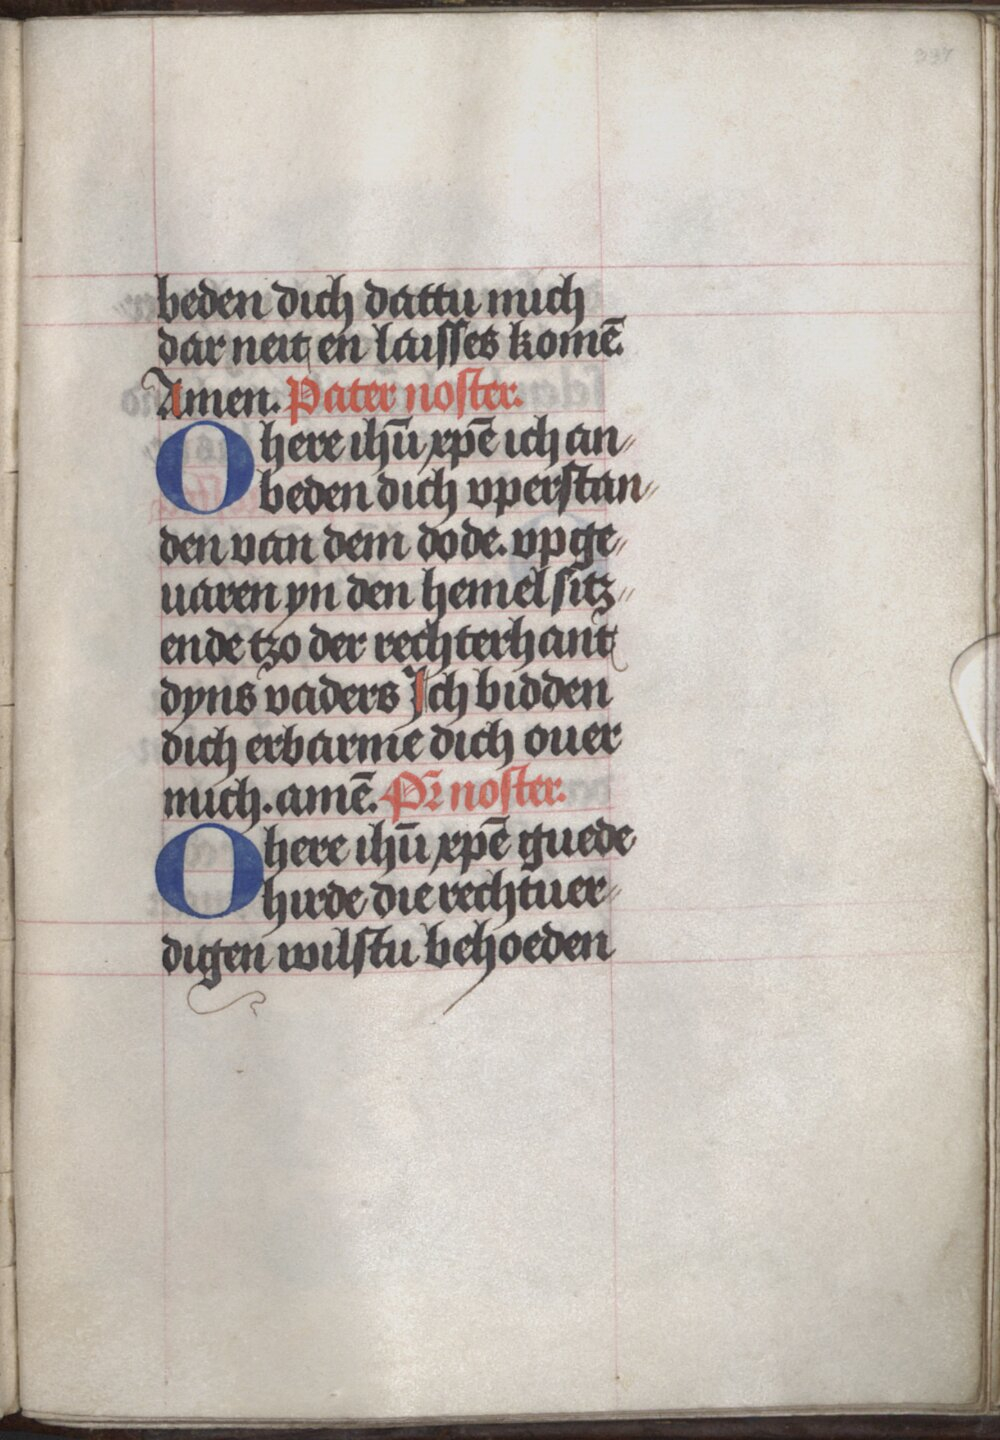 beden dich dattu mich
dar neit en laisses komē.
Amen. Pater noster.
O here ihū xpē ich an-
beden dich vperstan-
den van dem dode. vpge-
uaren yn den hemel sitz-
ende tzo der rechterhant
dyns vaders Ich bidden
dich erbarme dich ouer
mich. amē. Pr̄ noster.
O here ihū xpē guede
hirde die rechtuer-
digen wilstu behoeden